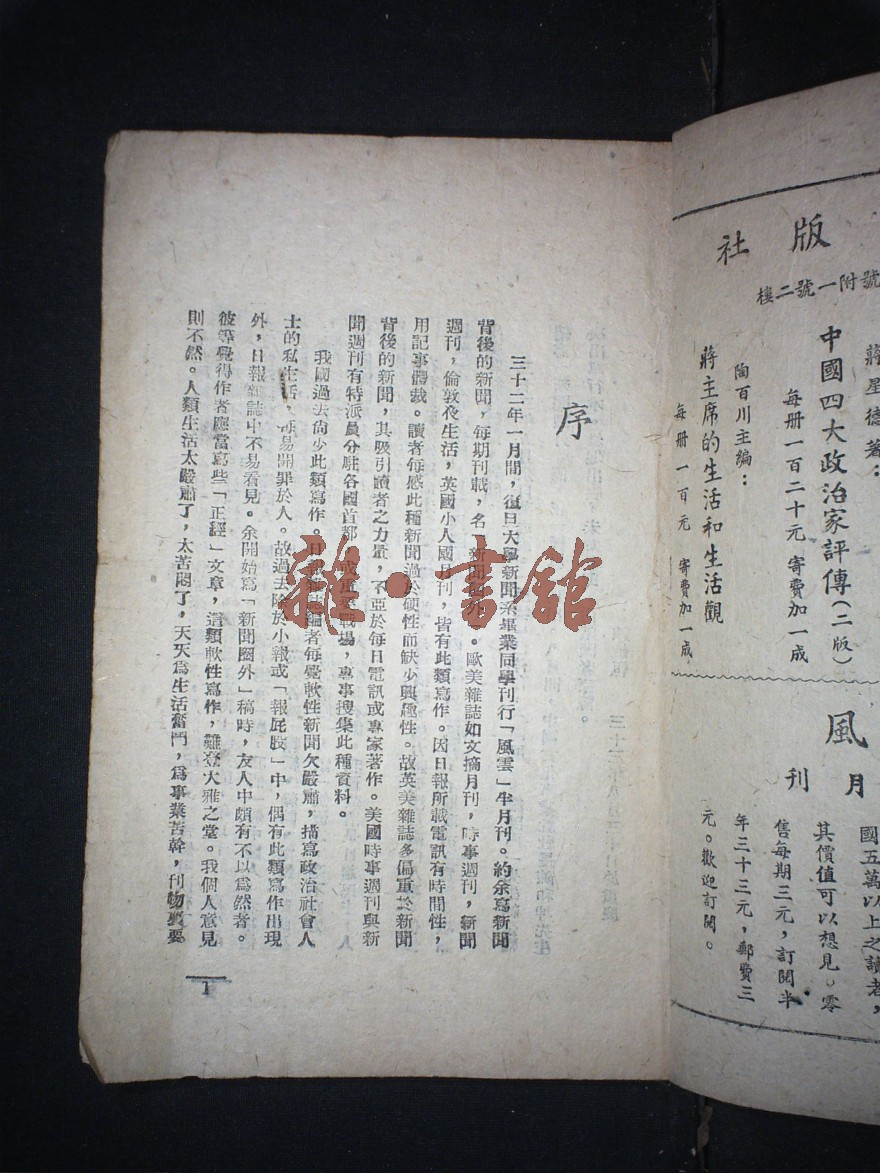 版社
號附一號二樓
蔣星德著：
中國四大政治家評傳(二版)
每册一百二十元 寄費加一成
陶百川主編：
蔣主席的生活和生活觀
每册一百元 寄費加一成
風
月刊
國五萬以上之讀者，
其價值可以想見。零
售每期三元，訂閱半
年三十三元，郵費三
元。歡迎訂閱。
序
三十二年一月間，復旦大學新聞系畢業同學刊行「風雲」半月刊。約余寫新聞
背後的新聞，每期刊載，名「新聞圈外」。歐美雜誌如文摘月刊，時事週刊，新聞
週刊，倫敦夜生活，英國小人國月刊，皆有此類寫作。因日報所載電訊有時間性，
用記事體裁。讀者每感此種新聞過於硬性而缺少興趣性。故英美雜誌多偏重於新聞
背後的新聞，其吸引讀者之力量，不亞於每日電訊或專家著作。美國時事週刊與新
聞週刊有特派員分駐各國首都，或重要戰場，專事搜集此種資料。
我國過去尚少此類寫作。日報雜誌編者每覺軟性新聞欠嚴肅，描寫政治社會人
士的私生活，每易開罪於人。故過去除於小報或「報屁股」中，偶有此類寫作出現
外，日報雜誌中不易看見。余開始寫「新聞圈外」稿時，友人中頗有不以爲然者。
彼等覺得作者應當寫些「正經」文章，這類軟性寫作，難登大雅之堂。我個人意見
則不然。人類生活太嚴肅了，太苦悶了，天天爲生活奮鬥，爲事業苦幹，刊物要要
1
雜·書館